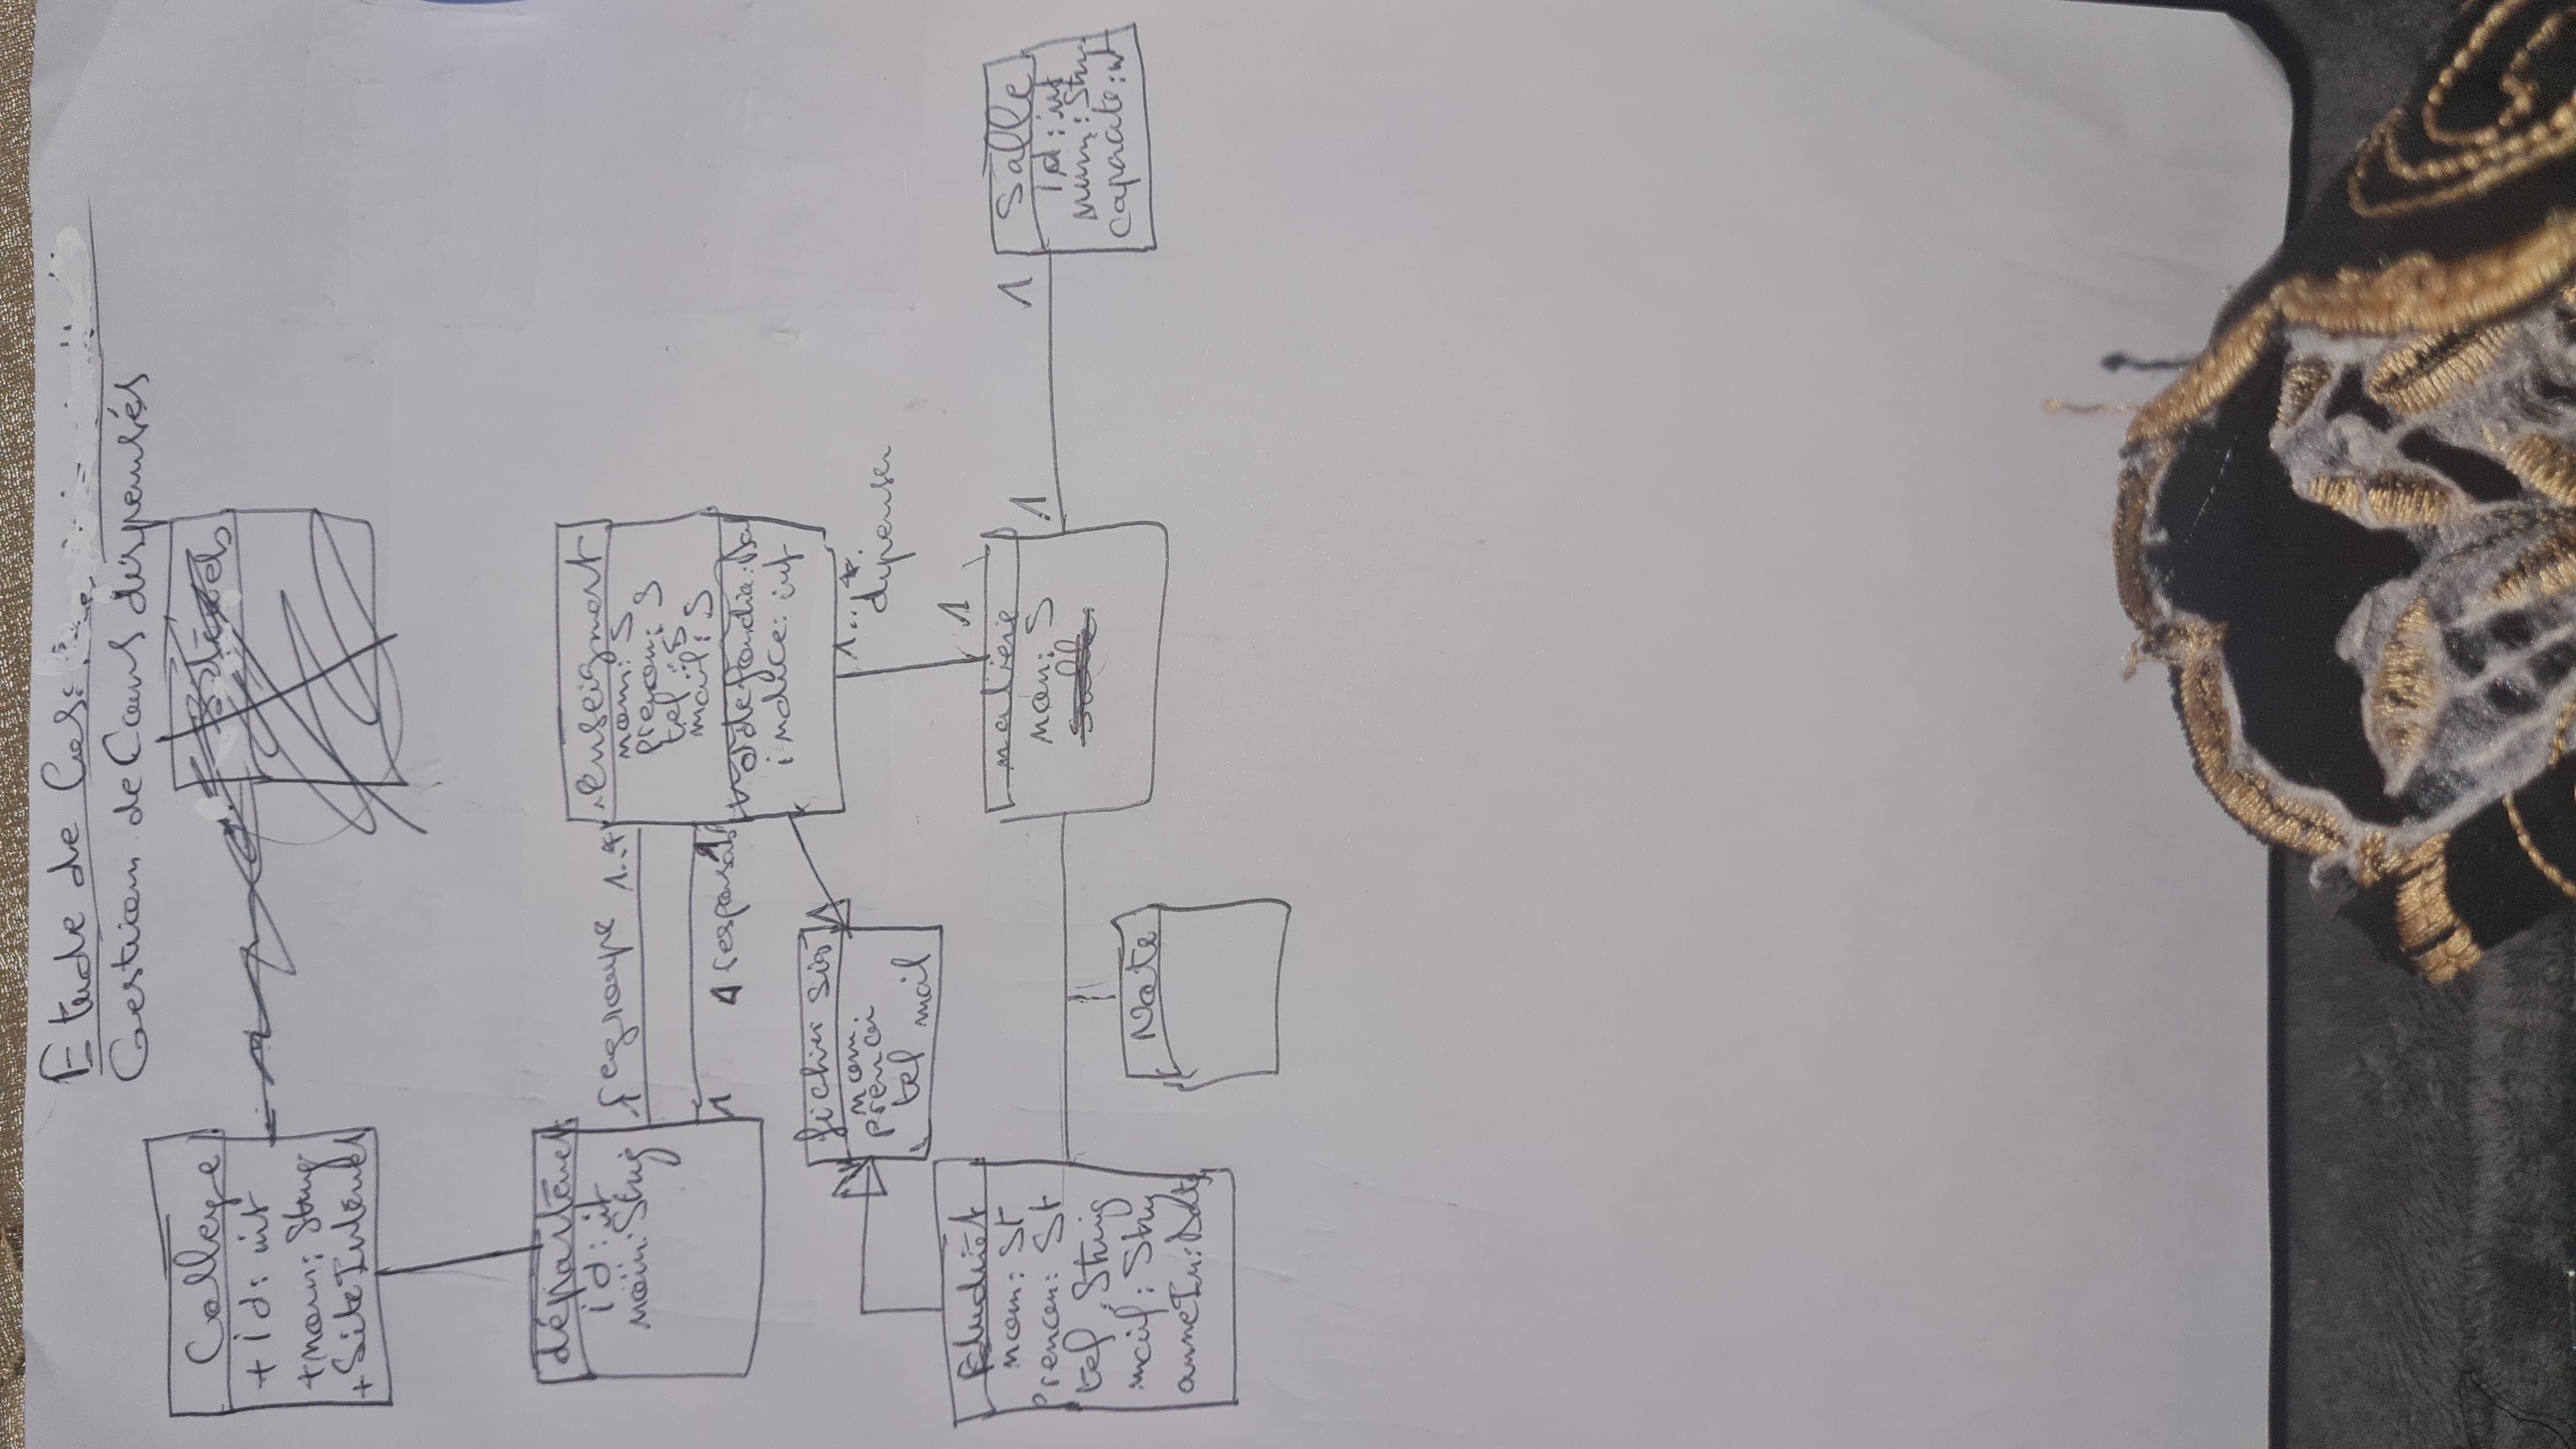 Etude de Cas:
Gestion de Cours dispensés
College
+ id: int
+ nom: String
+ Site Internet
département
id: int
nom: String
1 regroupe 1..*
1 1 responsable 1
enseignant
nom: S
prenom: S
tel: S
mail: S
indice: int
1...*
dipenser
1
fichier
nom
prenom
tel mail
Etudiant
nom: St
Prenom: St
tel: String
mail: Strg
annéIn: Date
Note
matiere
nom: S
1 1
Salle
id: int
num: Strin
capacite: int